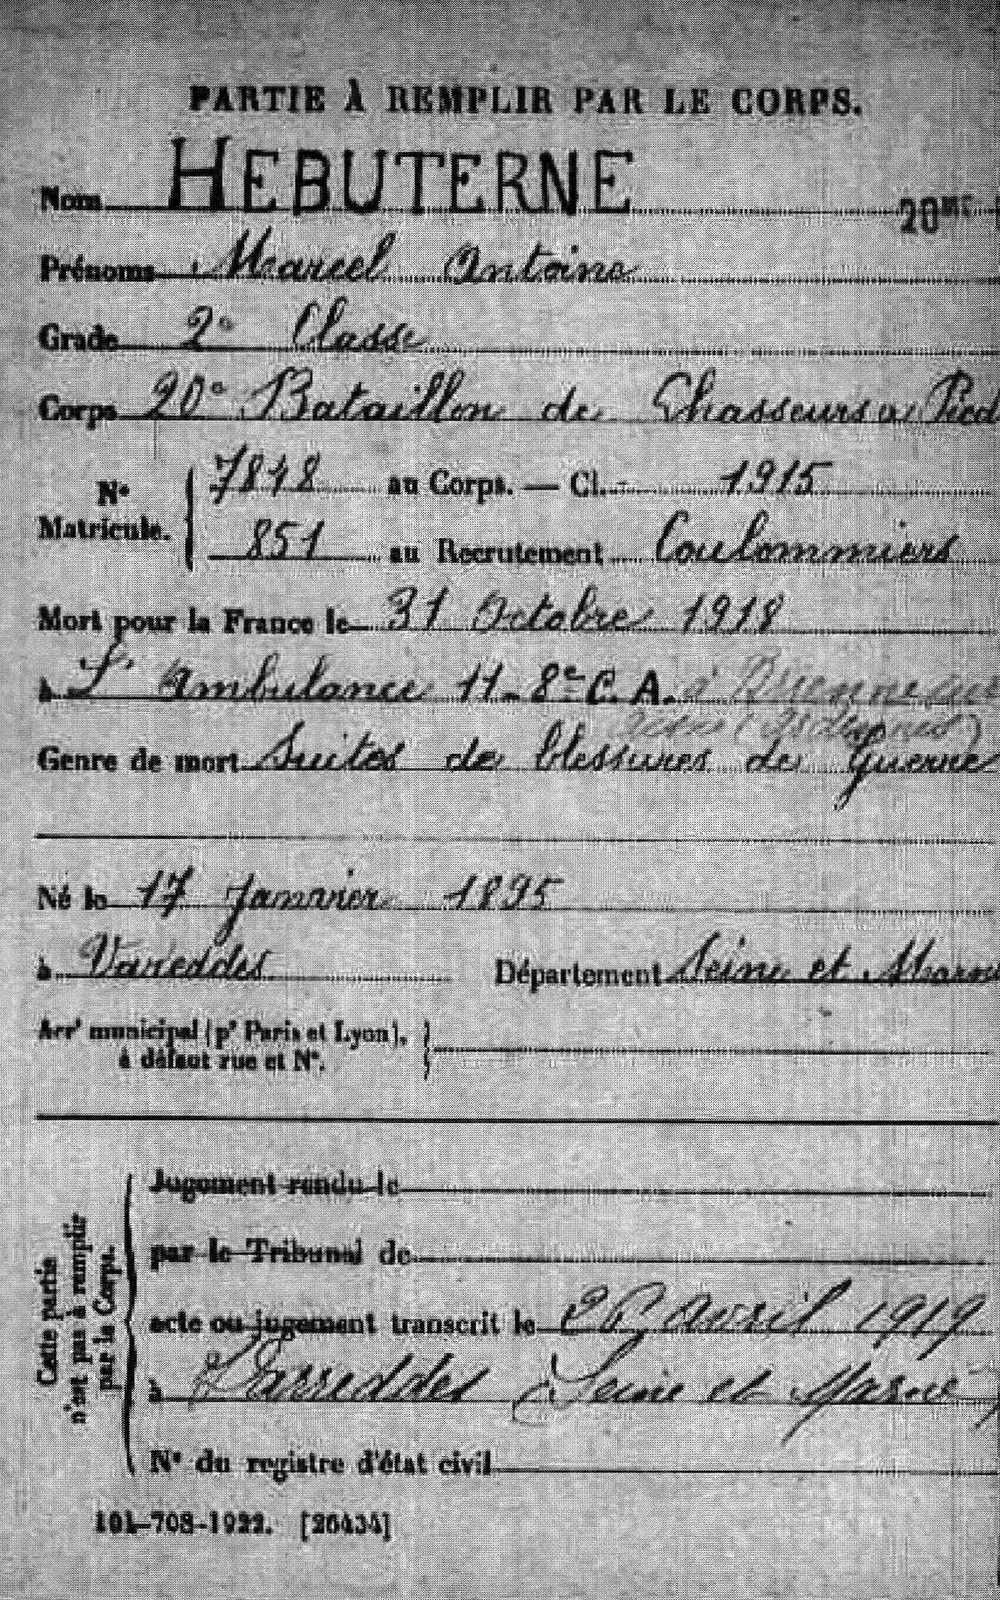 PARTIE À REMPLIR PAR LE CORPS.
Nom HEBUTERNE
20ME
Prénoms Marcel Antoine
Grade 2e Classe
Corps 20e Bataillon de Chasseurs à Pied
N° Matricule. 7848 au Corps. — Cl. 1915
851 au Recrutement Coulommiers
Mort pour la France le 31 Octobre 1918
à L'Ambulance 11-8e C.A. à Brienne sur
Aisne (Ardennes)
Genre de mort Suites de blessures de Guerre
Né le 17 Janvier 1895
à Vareddes Département Seine et Marne
Arrt municipal (pr Paris et Lyon),
à défaut rue et N°.
Cette partie
n'est pas à remplir
par le Corps.
Jugement rendu le
par le Tribunal de
acte ou jugement transcrit le 26 avril 1919
à Varreddes (Seine et Marne)
N° du registre d'état civil
101-708-1922. [26434]